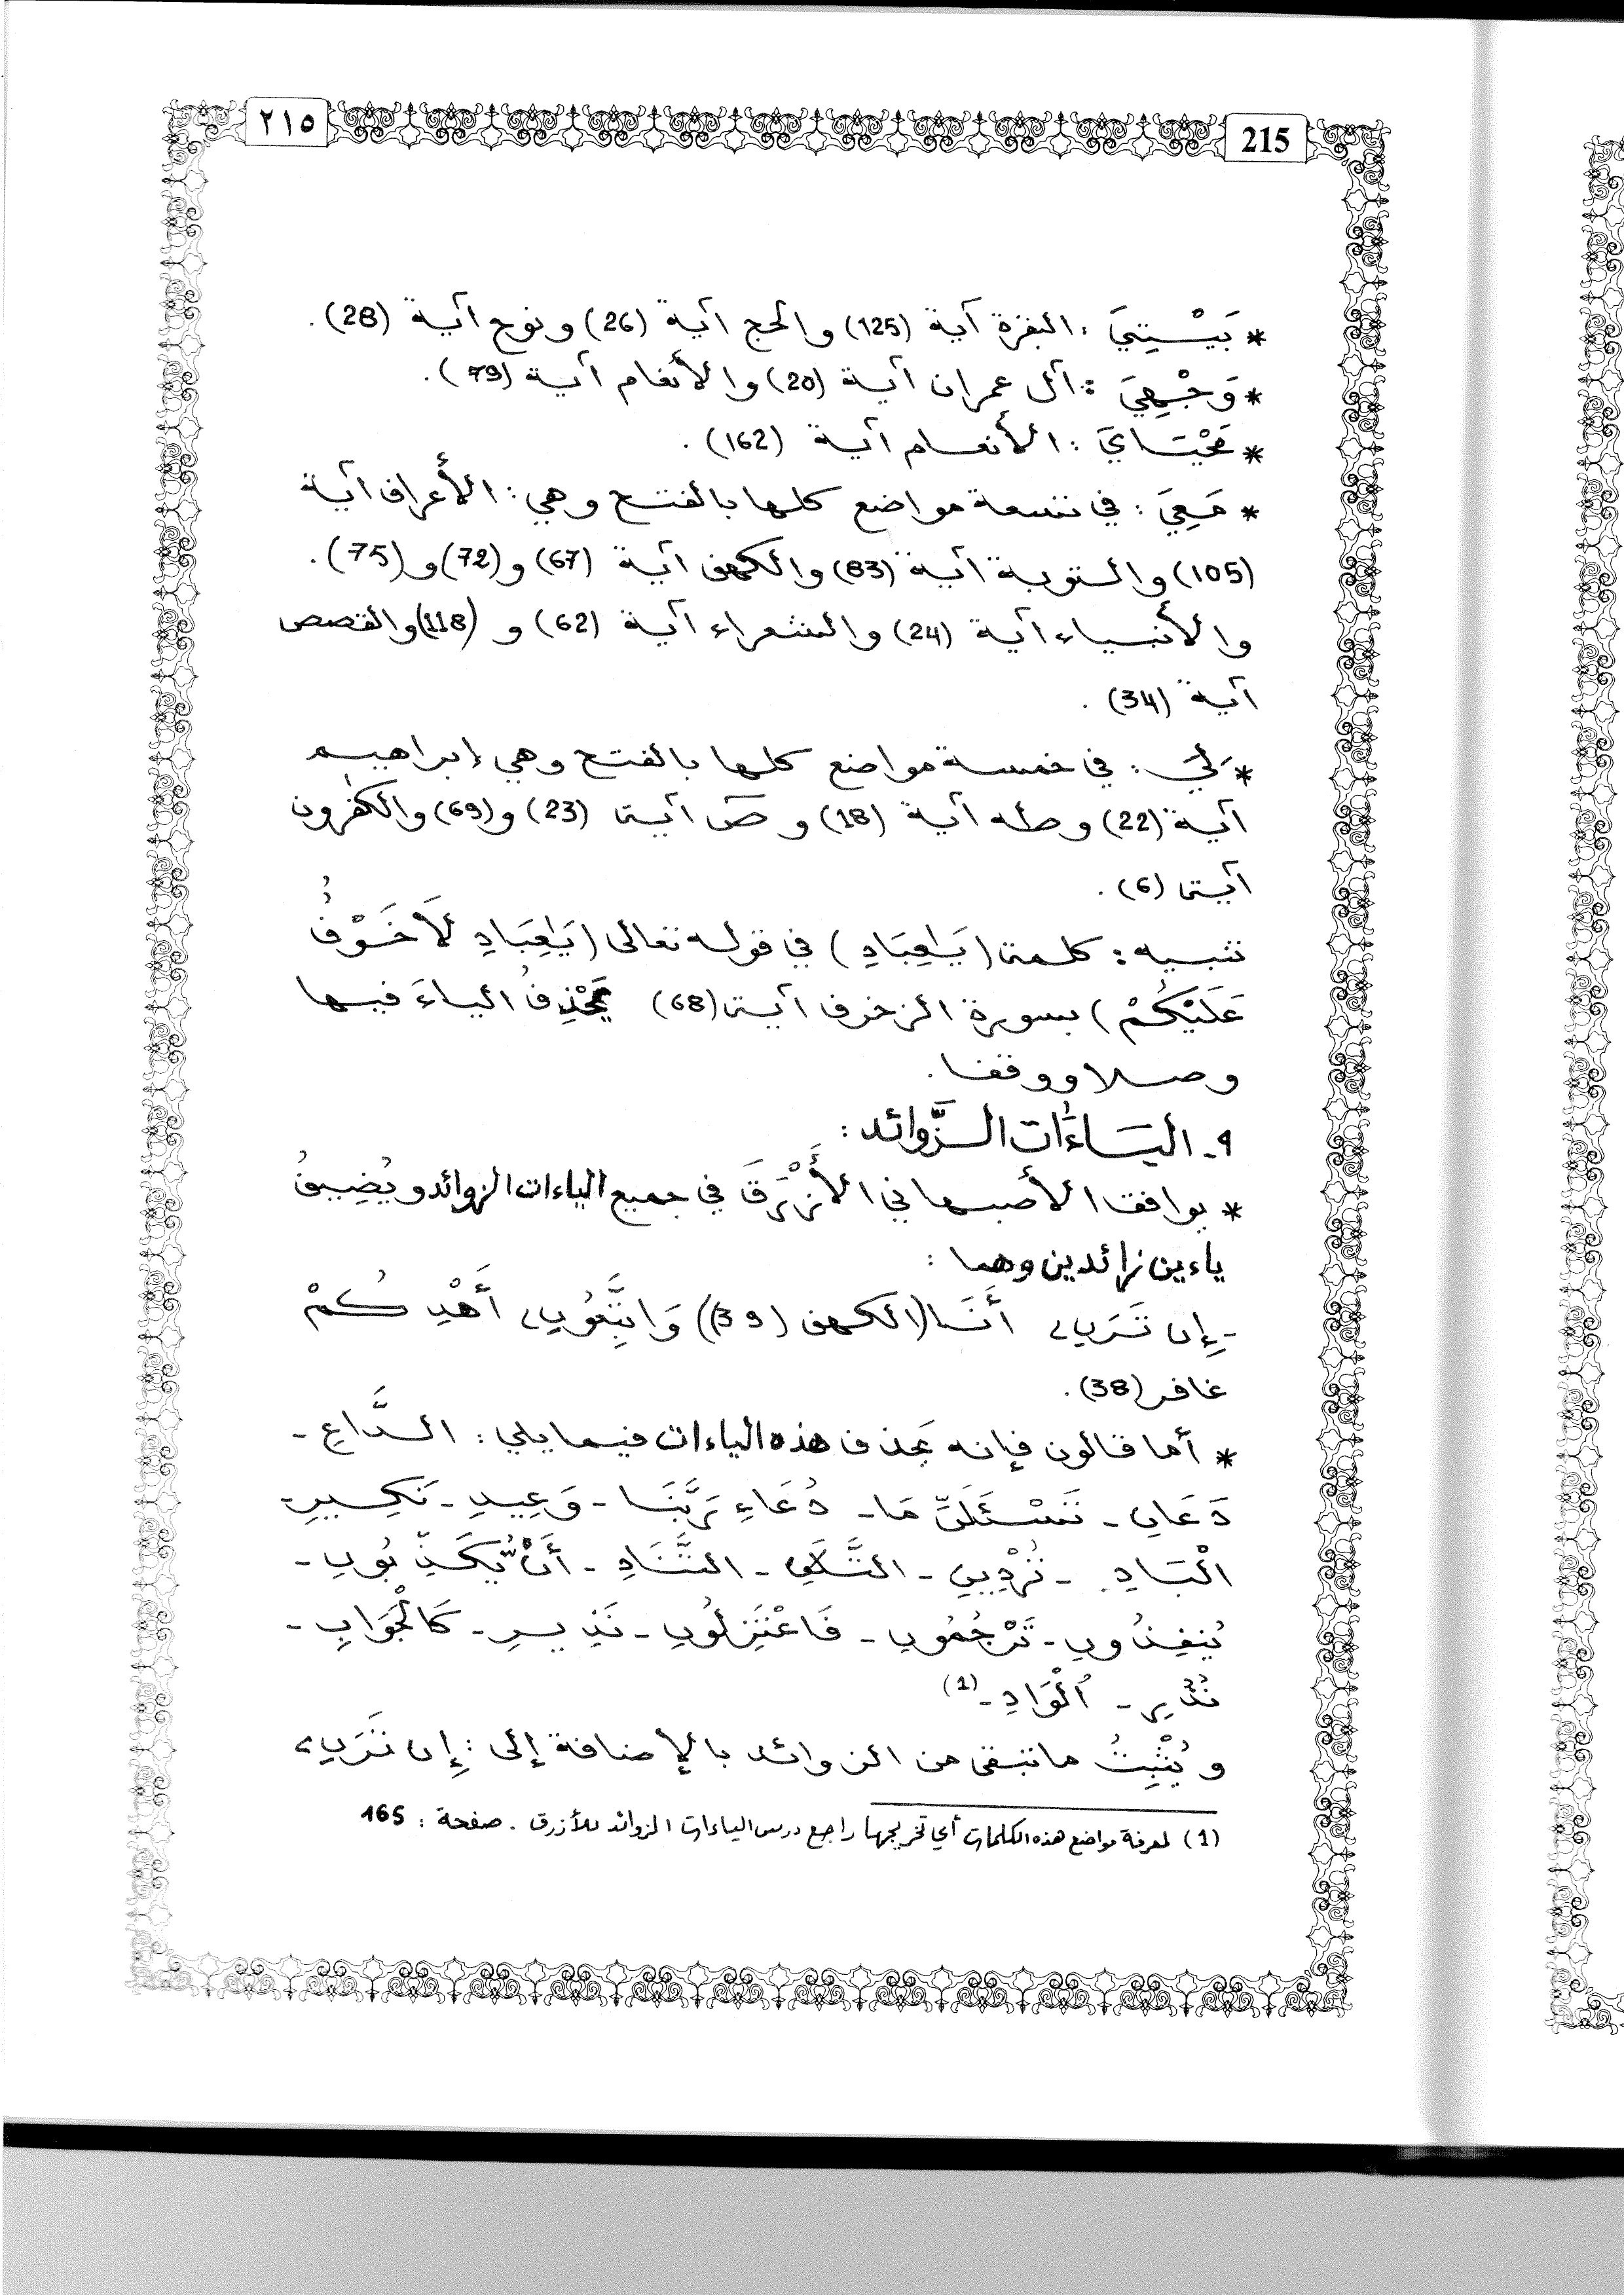 ٢١٥
215
* بَيْتِيَ : البقرة آية (125) والحج آية (26) ونوح آية (28).
* وَجْهِيَ : آل عمران آية (20) والأنعام آية (79).
* مَحْيَايَ : الأنعام آية (162).
* مَعِيَ : في تسعة مواضع كلها بالفتح وهي : الأعراف آية
(105) والتوبة آية (83) والكهف آية (67) و (72) و (75).
والأنبياء آية (24) والشعراء آية (62) و (118) والقصص
آية (34).
* لِيَ : في خمسة مواضع كلها بالفتح وهي إبراهيم
آية (22) وطه آية (18) وصّ آية (23) و (69) والكٰفرون
آية (6).
تنبيه : كلمة (يَٰعِبَادِ) في قوله تعالى (يَٰعِبَادِ لَا خَوْفُ
عَلَيْكُمْ) بسورة الزخرف آية (68) يَحْذِفُ الياءَ فيها
وصلا ووقفا.
٩ـ اليَاءَات الزَّوائد :
* يوافق الأصبهاني الأَزْرَقَ في جميع الياءات الزوائد ويُضِيفُ
ياءين زائدين وهما :
- إِن تَرَنِۦ أَنَا (الكهف (39)) وَاتَّبِعُونِۦ أَهْدِكُمْ
غافر (38).
* أما قالون فإنه يحذف هذه الياءات فيما يلي : الدَّاعِ -
دَعَانِ - تَسْـَٔلَنِّ مَا - دُعَاءِ رَبَّنَا - وَعِيدِ - نَكِيرِ -
الْبَادِ - تُرْدِينِ - التَّلَاقِ - التَّنَادِ - أَنْ يُّكَذِّبُونِ -
يُنقِذُونِ - تَرْجُمُونِ - فَاعْتَزِلُونِ - نَذِيرِ - كَالْجَوَابِ -
نُذُرِ - الْوَادِ - (1)
ويُثْبِتُ ما تبقى من الزوائد بالإضافة إلى : إِن تَرَنِۦ
(1) لمعرفة مواضع هذه الكلمات أي تخريجها راجع درس الياءات الزوائد للأزرق . صفحة : 165